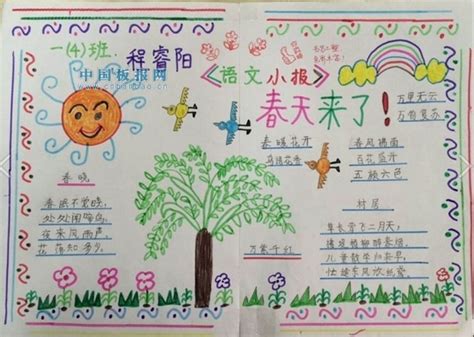 一(4)班
程睿阳
中国板报网
《语文小报》
春天来了!
万里无云
万物复苏
春暖花开
鸟语花香
春风拂面
百花盛开
五颜六色
万紫千红
春晓
春眠不觉晓,
处处闻啼鸟。
夜来风雨声,
花落知多少。
村居
草长莺飞二月天,
拂堤杨柳醉春烟。
儿童散学归来早,
忙趁东风放纸鸢。